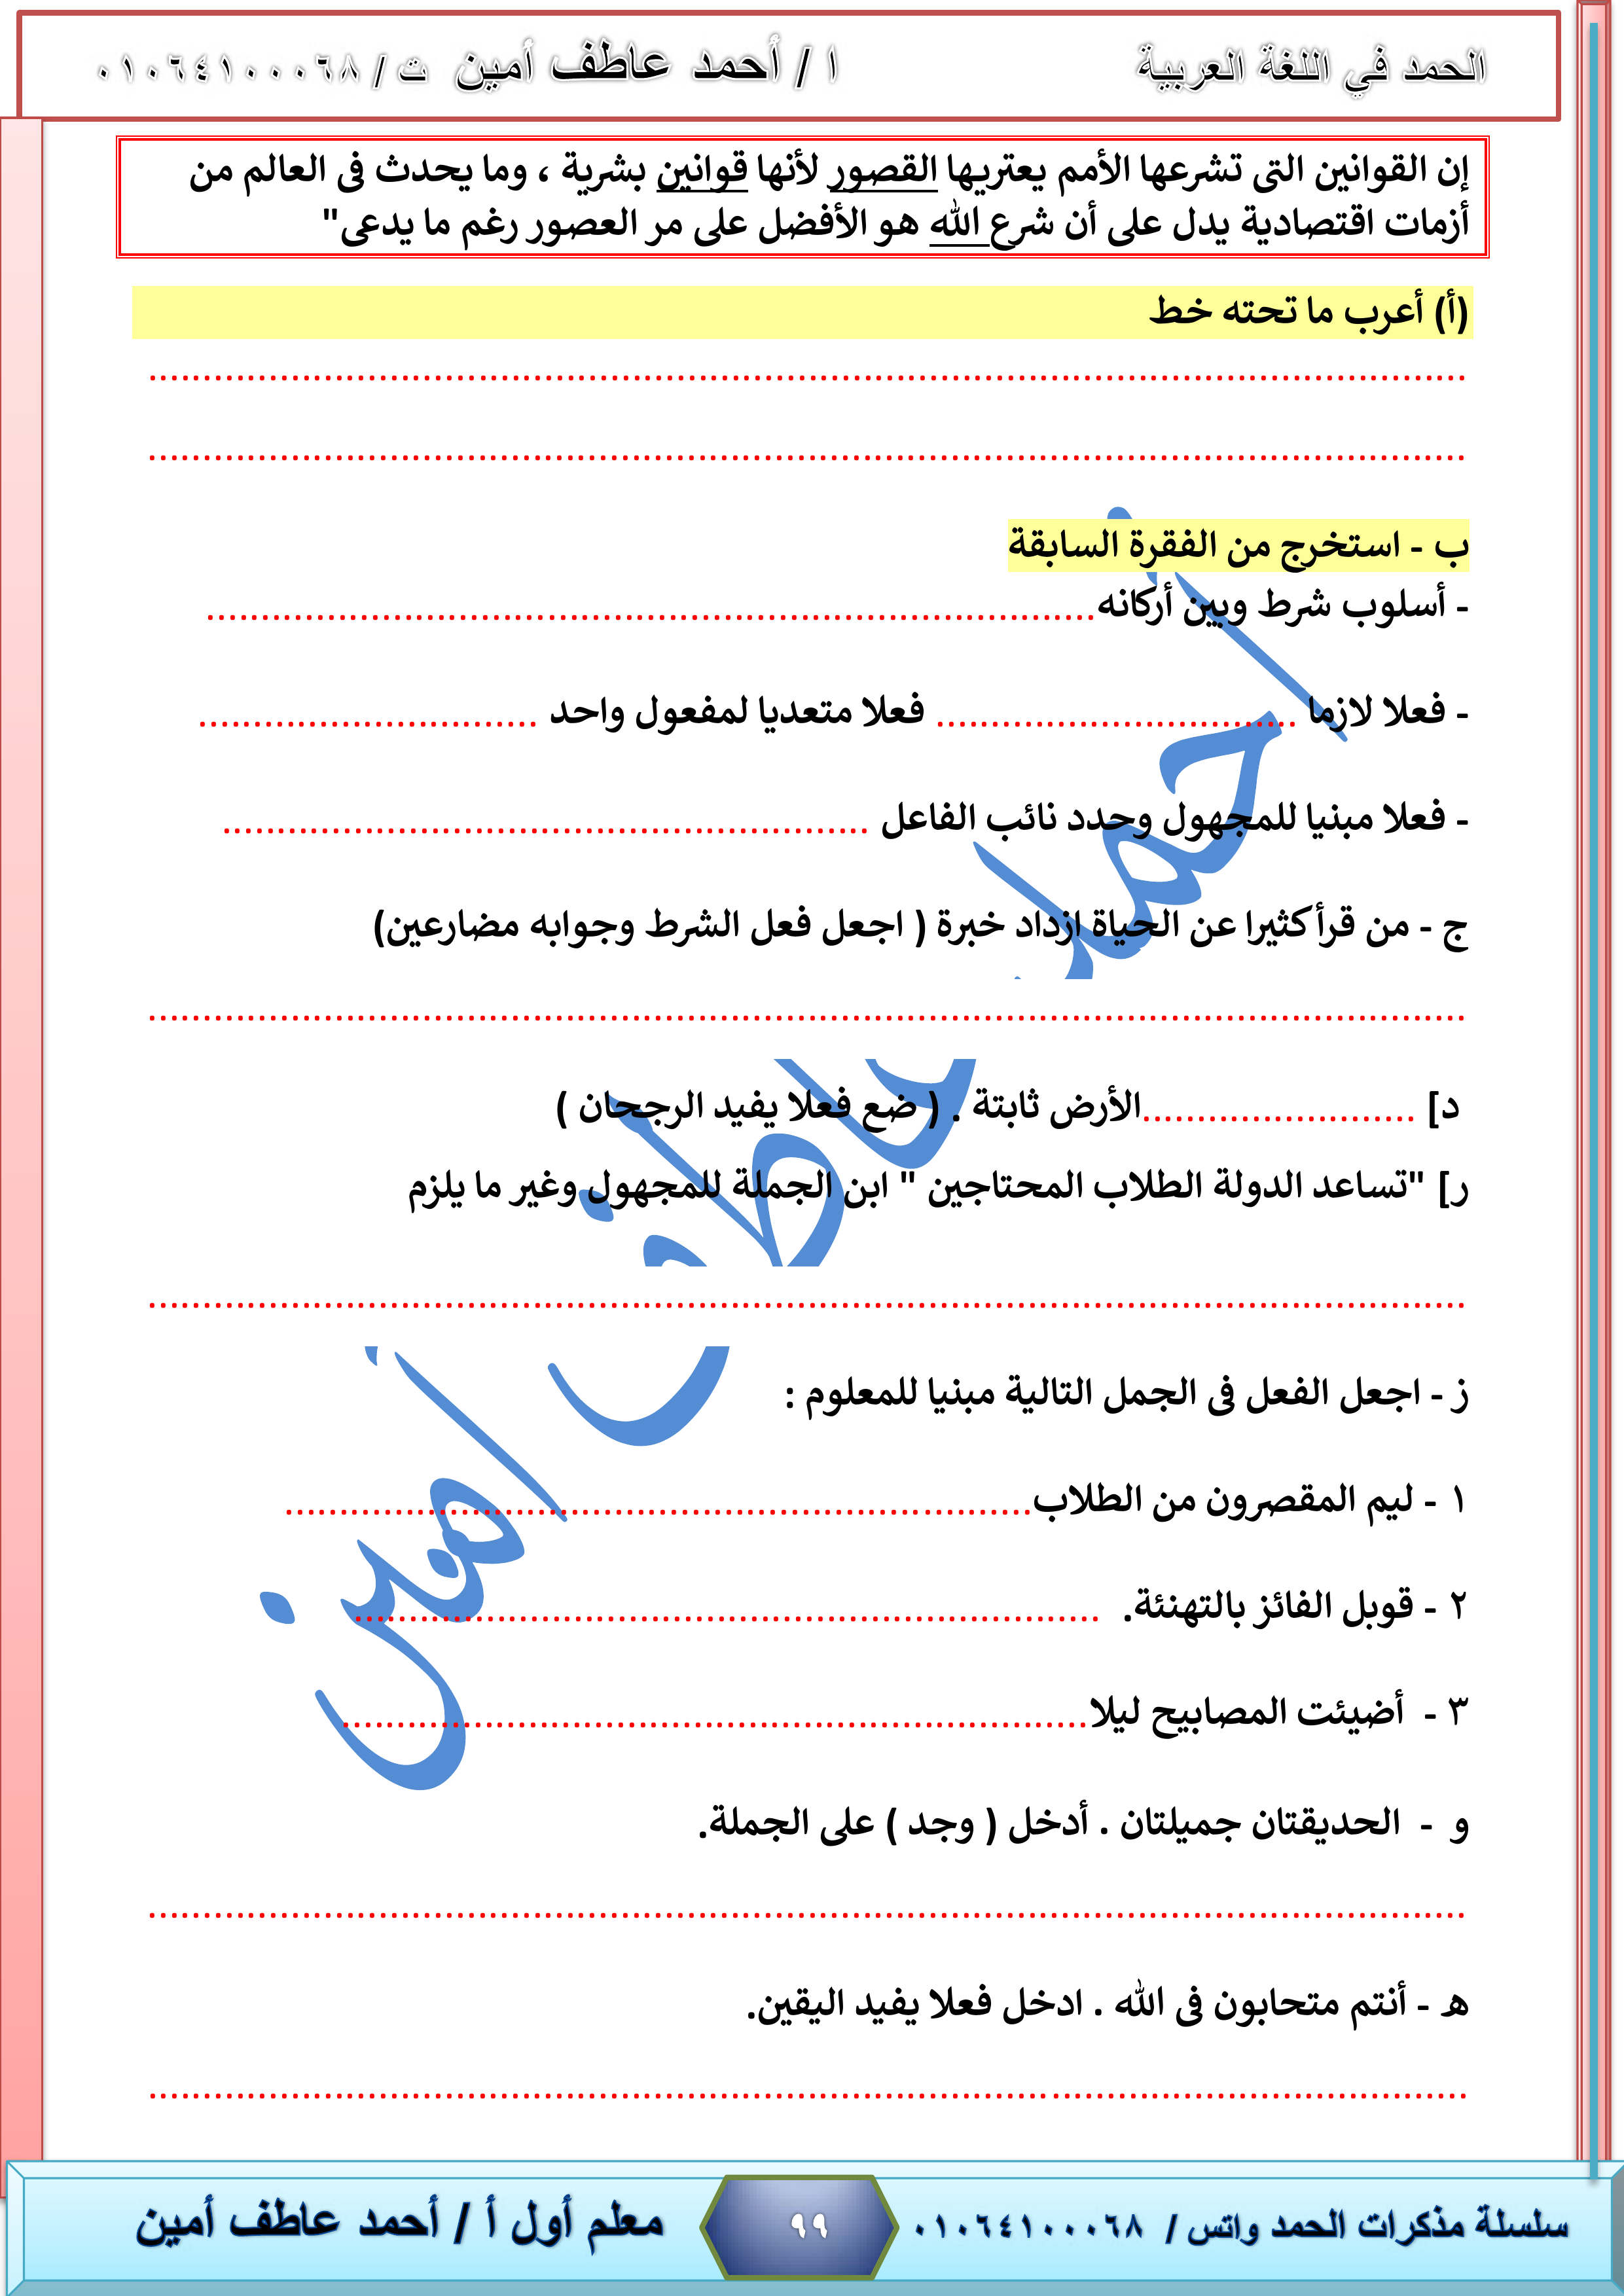 الحمد في اللغة العربية ا / أحمد عاطف أمين ت / ٠١٠٦٤١٠٠٠٦٨
إن القوانين التى تشرعها الأمم يعتريها القصور لأنها قوانين بشرية ، وما يحدث فى العالم من
أزمات اقتصادية يدل على أن شرع الله هو الأفضل على مر العصور رغم ما يدعى"
(أ) أعرب ما تحته خط
ب - استخرج من الفقرة السابقة
- أسلوب شرط وبين أركانه
- فعلا لازما فعلا متعديا لمفعول واحد
- فعلا مبنيا للمجهول وحدد نائب الفاعل
ج - من قرأ كثيرا عن الحياة ازداد خبرة ( اجعل فعل الشرط وجوابه مضارعين)
د] ........................الأرض ثابتة . ( ضع فعلا يفيد الرجحان )
ر] "تساعد الدولة الطلاب المحتاجين " ابن الجملة للمجهول وغير ما يلزم
ز - اجعل الفعل فى الجمل التالية مبنيا للمعلوم :
١ - ليم المقصرون من الطلاب
٢ - قوبل الفائز بالتهنئة.
٣ - أضيئت المصابيح ليلا
و - الحديقتان جميلتان . أدخل ( وجد ) على الجملة.
ه - أنتم متحابون فى الله . ادخل فعلا يفيد اليقين.
أحمد عاطف أمين
سلسلة مذكرات الحمد واتس / ٠١٠٦٤١٠٠٠٦٨ ٩٩ معلم أول أ / أحمد عاطف أمين